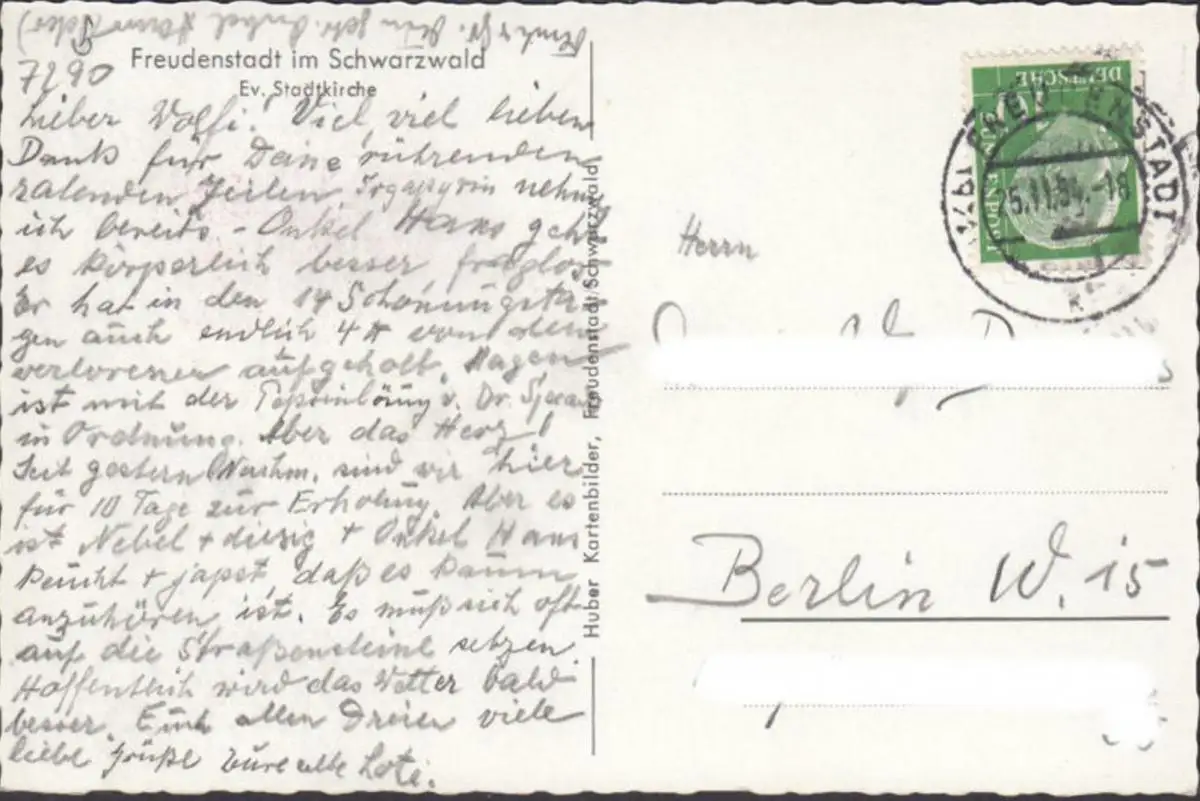 Freudenstadt im Schwarzwald
7290
Ev. Stadtkirche
Lieber Wolfi! Viel, viel lieben
Dank für Deine rührenden
Zeilen. Irgapyrin nehme
ich bereits – Onkel Hans geht
es körperlich besser fraglos
Er hat in den 14 Schonungsta-
gen auch endlich 4 ℔ von den
verlorenen aufgeholt. Magen
ist mit der v. Dr.
in Ordnung. Aber das Herz!
Seit gestern Nachm. sind wir hier
für 10 Tage zur Erholung. Aber es
ist Nebel + diesig + Onkel Hans
keucht + japst, daß es kaum
anzuhören ist. Er muß sich oft
auf die Straßensteine setzen.
Hoffentlich wird das Wetter bald
besser. Euch allen Dreien viele
liebe Grüße Eure alte Loti.
Huber Kartenbilder, Freudenstadt/Schwarzwald
DEUTSCHE
FREUDENSTADT
25.11.54.-18
Herrn
Berlin W. 15